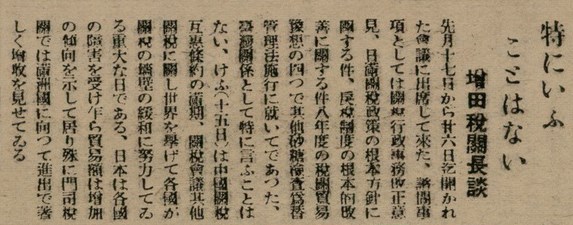 特にいふ
ことはない
增田稅關長談
先月十七日から廿六日迄開かれ
た會議に出席して來た、諮問事
項としては關稅行政事務改正意
見、日滿關稅政策の根本方針に
關する件、戾稅制度の根本的改
善に關する件八年度の稅關貿易
豫想の四つで其他砂糖檢査爲替
管理法施行に就いてであつた、
臺灣關係として特に言ふことは
ない、けふ(十五日)は中國關稅
互惠條約の滿期、關稅會議其他
關稅に關し世界を擧げて各國が
關稅の障壁の緩和に努力してゐ
る重大な日である、日本は各國
の障害を受け乍ら貿易額は增加
の傾向を示して居り殊に門司稅
關では滿洲國に向つて進出で著
しく增收を見せてゐる